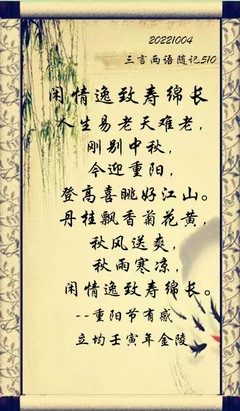 20221004
三言两语随记510
闲情逸致寿绵长
人生易老天难老，
刚别中秋，
今迎重阳，
登高喜眺好江山。
丹桂飘香菊花黄，
秋风送爽，
秋雨寒凉，
闲情逸致寿绵长。
--重阳节有感
立均壬寅年金陵